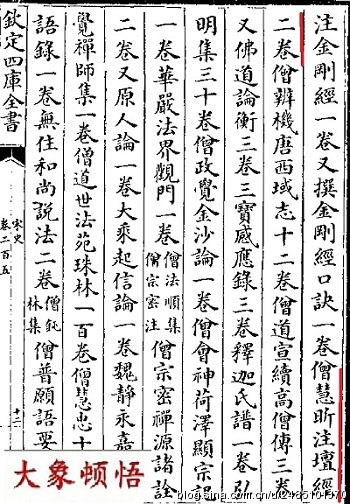 注金剛經一卷又撰金剛經口訣一卷僧慧昕注壇經
二卷僧辨機唐西域志十二卷僧道宣續高僧傳三卷
又佛道論衡三卷三寶感應錄三卷釋迦氏譜一卷弘
明集三十卷僧政覺金沙論一卷僧會神荷澤顯宗記
一卷華嚴法界觀門一卷僧法順集僧宗密注僧宗密禪源諸詮
二卷又原人論一卷大乘起信論一卷魏靜永嘉
覺禪師集一卷僧道世法苑珠林一百卷僧慧忠
語錄一卷無住和尚說法二卷僧鈍林集僧普願語要
欽定四庫全書
宋史
卷二百五
十二
大象顿悟